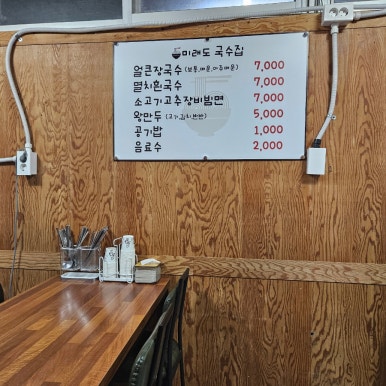 미래도 국수집
얼큰장국수 (보통,매운,아주매운) 7,000
멸치흰국수 7,000
소고기고추장비빔면 7,000
왕만두 (고기,김치,반반) 5,000
공기밥 1,000
음료수 2,000